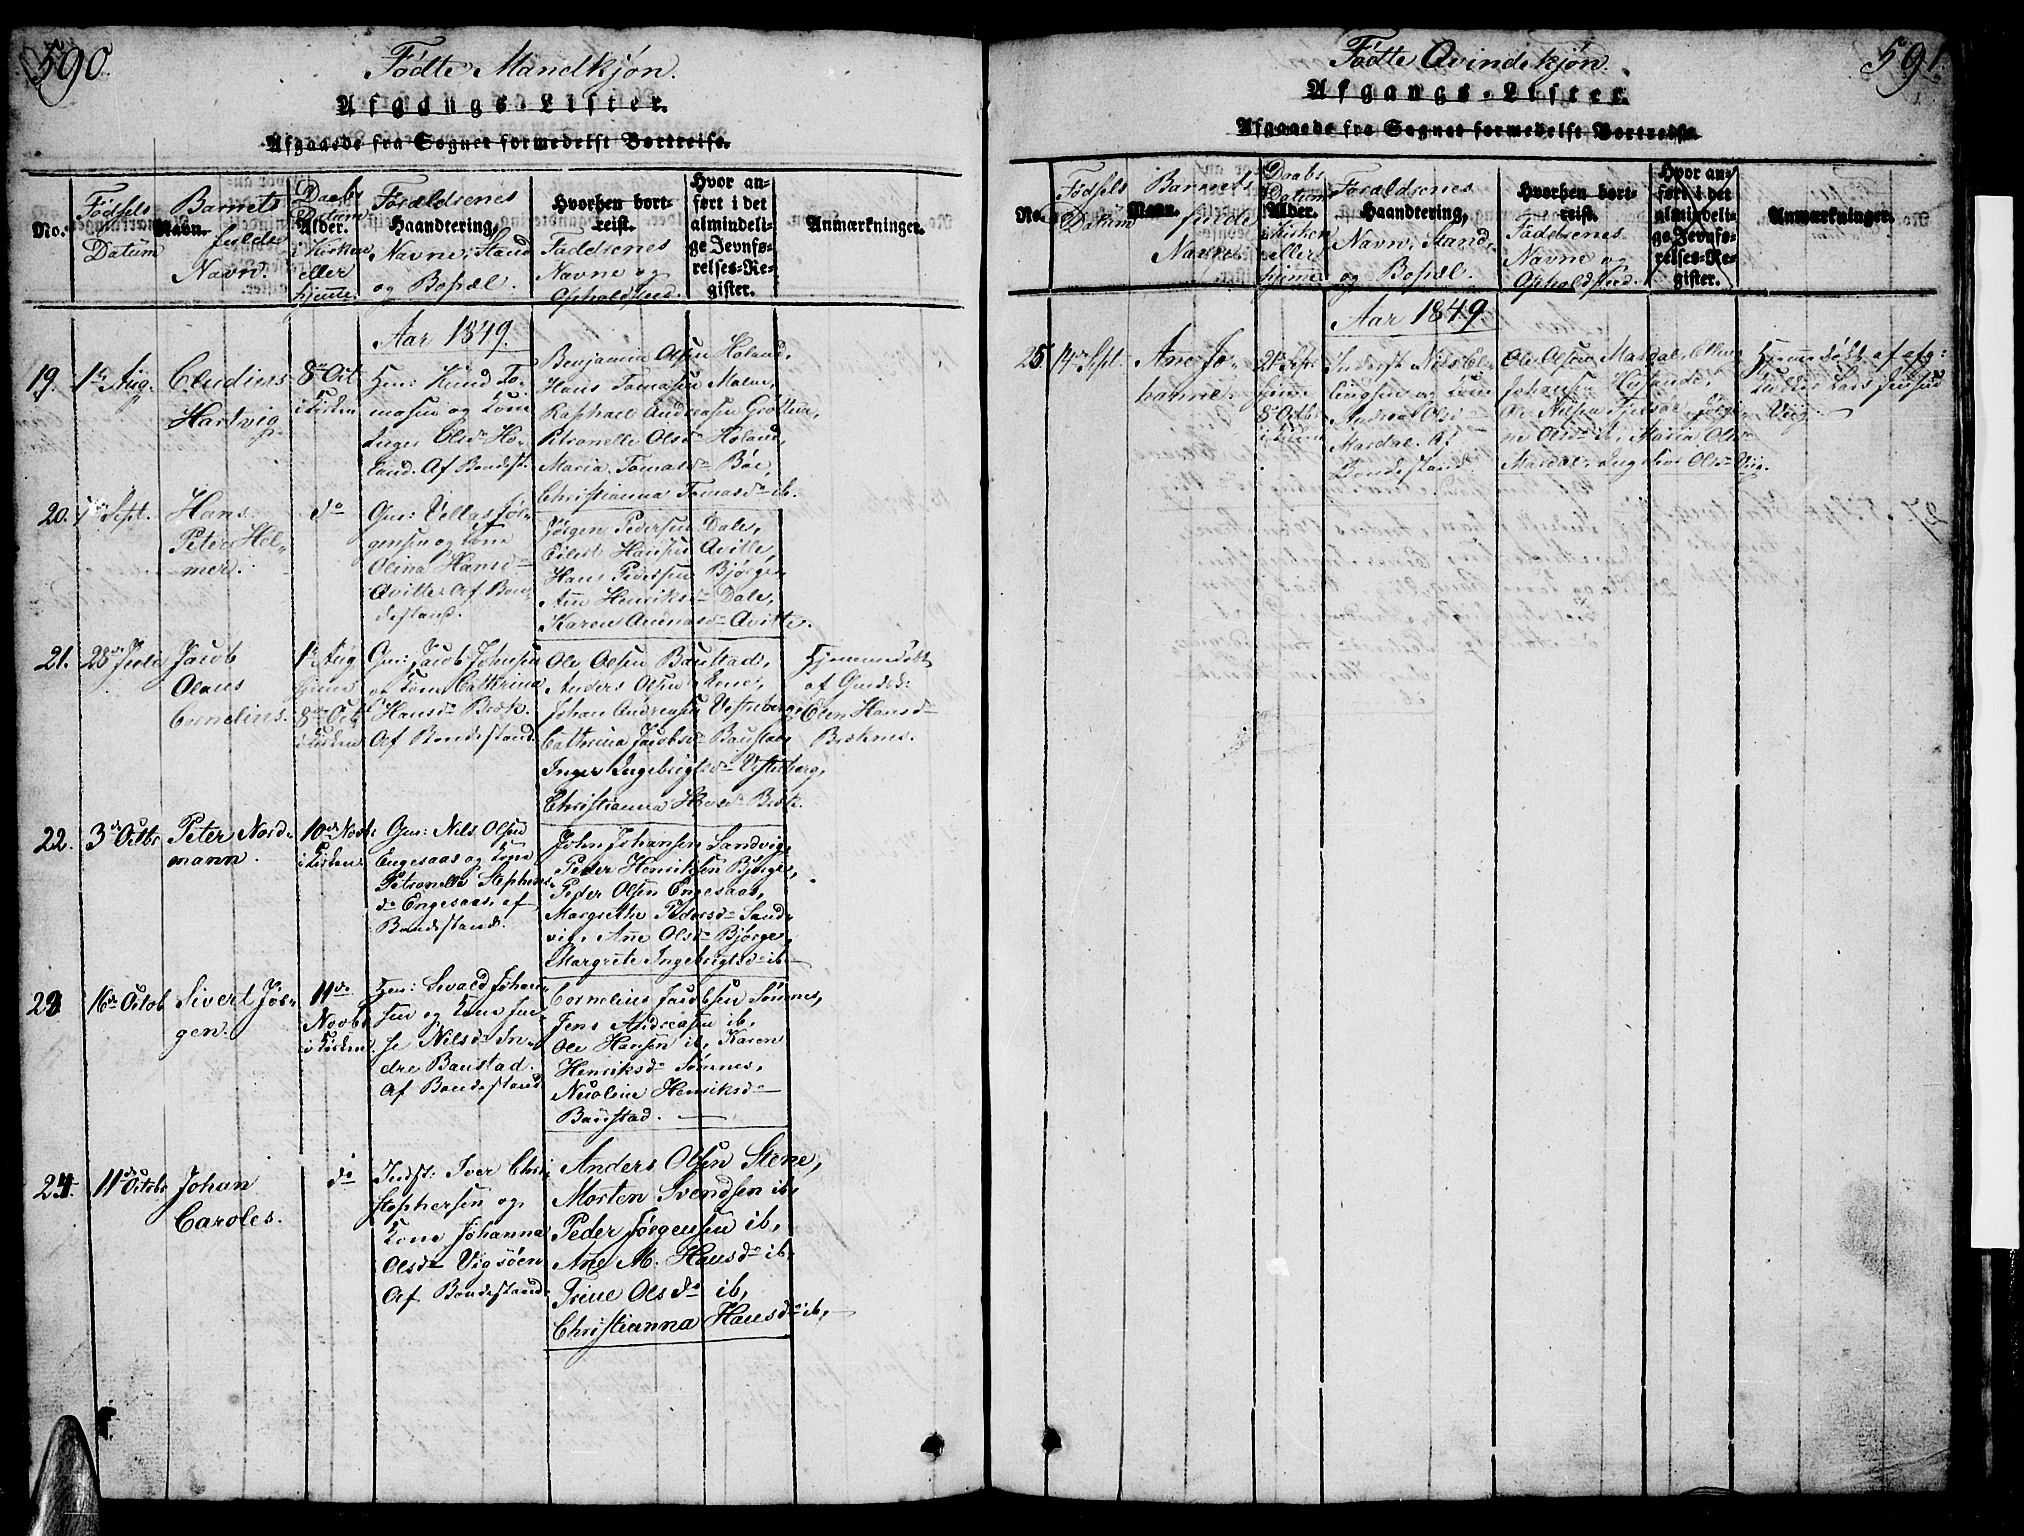 590.
Födte Mandkjön.
Afgangs-Lister.
Afgaaede fra Sognet formedelst Bortreise.
No.
Födsels
Datum
Barnets
Navn.
fulde
Navn.
Daabs
Datum
Alder.
i Kirken
eller
hjemme.
Forældrenes
Haandtering,
Navne, Stand
og Bopæl.
Hvorhen bort-
reist.
Faddrenes
Navne og
Opholdsted.
Hvor an-
ført i det
almindeli-
ge Jevnfø-
relses-Re-
gister.
Anmærkninger.
Aar 1849.
19.
1ste Aug.
Cludius
Hartvig
8de Oct
i Kirken
Gm: Knud To-
masen og Kone
Inger Olsdr Ho-
land. Af Bondest.
Benjamin Olsen Holand,
Hans Tomasen Malne,
Raphael Andreasen Grötten,
Petronelle Olsdr Holand,
Maria Tomasdr Böe,
Christianna Tomasdr ib.
20.
1ste Sept.
Hans
Peter Hel-
mer.
do
Gm: Vellas Jör-
gensen og Kone
Olina Hansdr
Qvitte. Af Bon-
destand.
Jörgen Pedersen Dale,
Eilert Hansen Qvitte,
Hans Pedersen Björge,
Ane Henriksdr Dale,
Karen Annasdr Qvitte.
21.
28de Juli
Jacob
Olaus
Cundius.
1ste Aug
hjeme
8de Oct
i Kirken
Gm: Jacob Johnsen
og Kone Cathrina
Hansdr Bræk.
Af Bondestand.
Ole Olsen Baustad,
Anders Olsen Ene,
Johan Andreasen Vesterberg
Cathrina Jacobsdr Baustad
Inger Ingebrigtsdr Vesterberg,
Christianna Hansdr Bræk.
Hjemmedöbt
af Gudod:
Elen Hansdr
Bræknes.
22.
3de Octbr
Peter Nord-
mann.
10de Novb:
i Kirken
Gm: Nils Olsen
Engesaas og Kone
Petronelle Stephens-
dr Engesaas, af
Bondestand.
John Johansen Sandvig,
Peder Henriksen Björge,
Peder Olsen Engesaas,
Margrethe Pedersdr Sand-
vig, Ane Olsdr Björge,
Margrete Ingebrigtsdr ib.
23
16de Octob
Sivert Jör-
gen.
11de
Novbr
i Kirken
Gm: Sivald Johan-
sen og Kone Jen-
se Nilsdr In-
dre Baustad.
Af Bondestand
Cornelius Jacobsen Sömnes,
Jens Andreasen ib,
Ole Hansen ib, Karen
Henriksdr Sömnes,
Nicoline Henriksdr
Baustad.
24.
11de Octobr
Johan
Caroles.
do
Indst. Iver Chri
stophersen og
Kone Johanna
Olsdr Vigsöen
Af Bondestand
Anders Olsen Stene,
Morten Svendsen ib,
Peder Jörgensen ib,
Ane M. Hansdr ib,
Trine Olsdr ib,
Christianna Hansdr ib,
591.
Födte Qvindekjön.
Afgangs-Lister.
Afgaaede fra Sognet formedelst Bortreise.
No.
Födsels
Datum
Barnets
Navn.
fulde
Navn.
Daabs
Datum
Alder.
i Kirken
eller
hjemme
Forældrenes
Haandtering,
Navn, Stand
og Bopæl.
Hvorhen bort-
reist.
Faddrenes
Navne og
Opholdsted.
Hvor an-
ført i det
almindeli-
ge Jevnfø-
relses-Re-
gister.
Anmærkninger.
Aar 1849.
25
14de Sept.
Ane Jo-
hanne.
21de Sept.
hjem.
8de Octbr
i Kirken
Inderst Nils El-
lingsen og Kone
Andrea Olsdr
Mardal. Af
Bondestand.
Ole Olsen Mardal, Elling
Johansen Hoglande,
Ole Nilsen
Maria Olsdr
Mardal, Ingebor Olsdr Viig.
Hjemmedöbt af afg:
Lars Jensen
Viig.
27